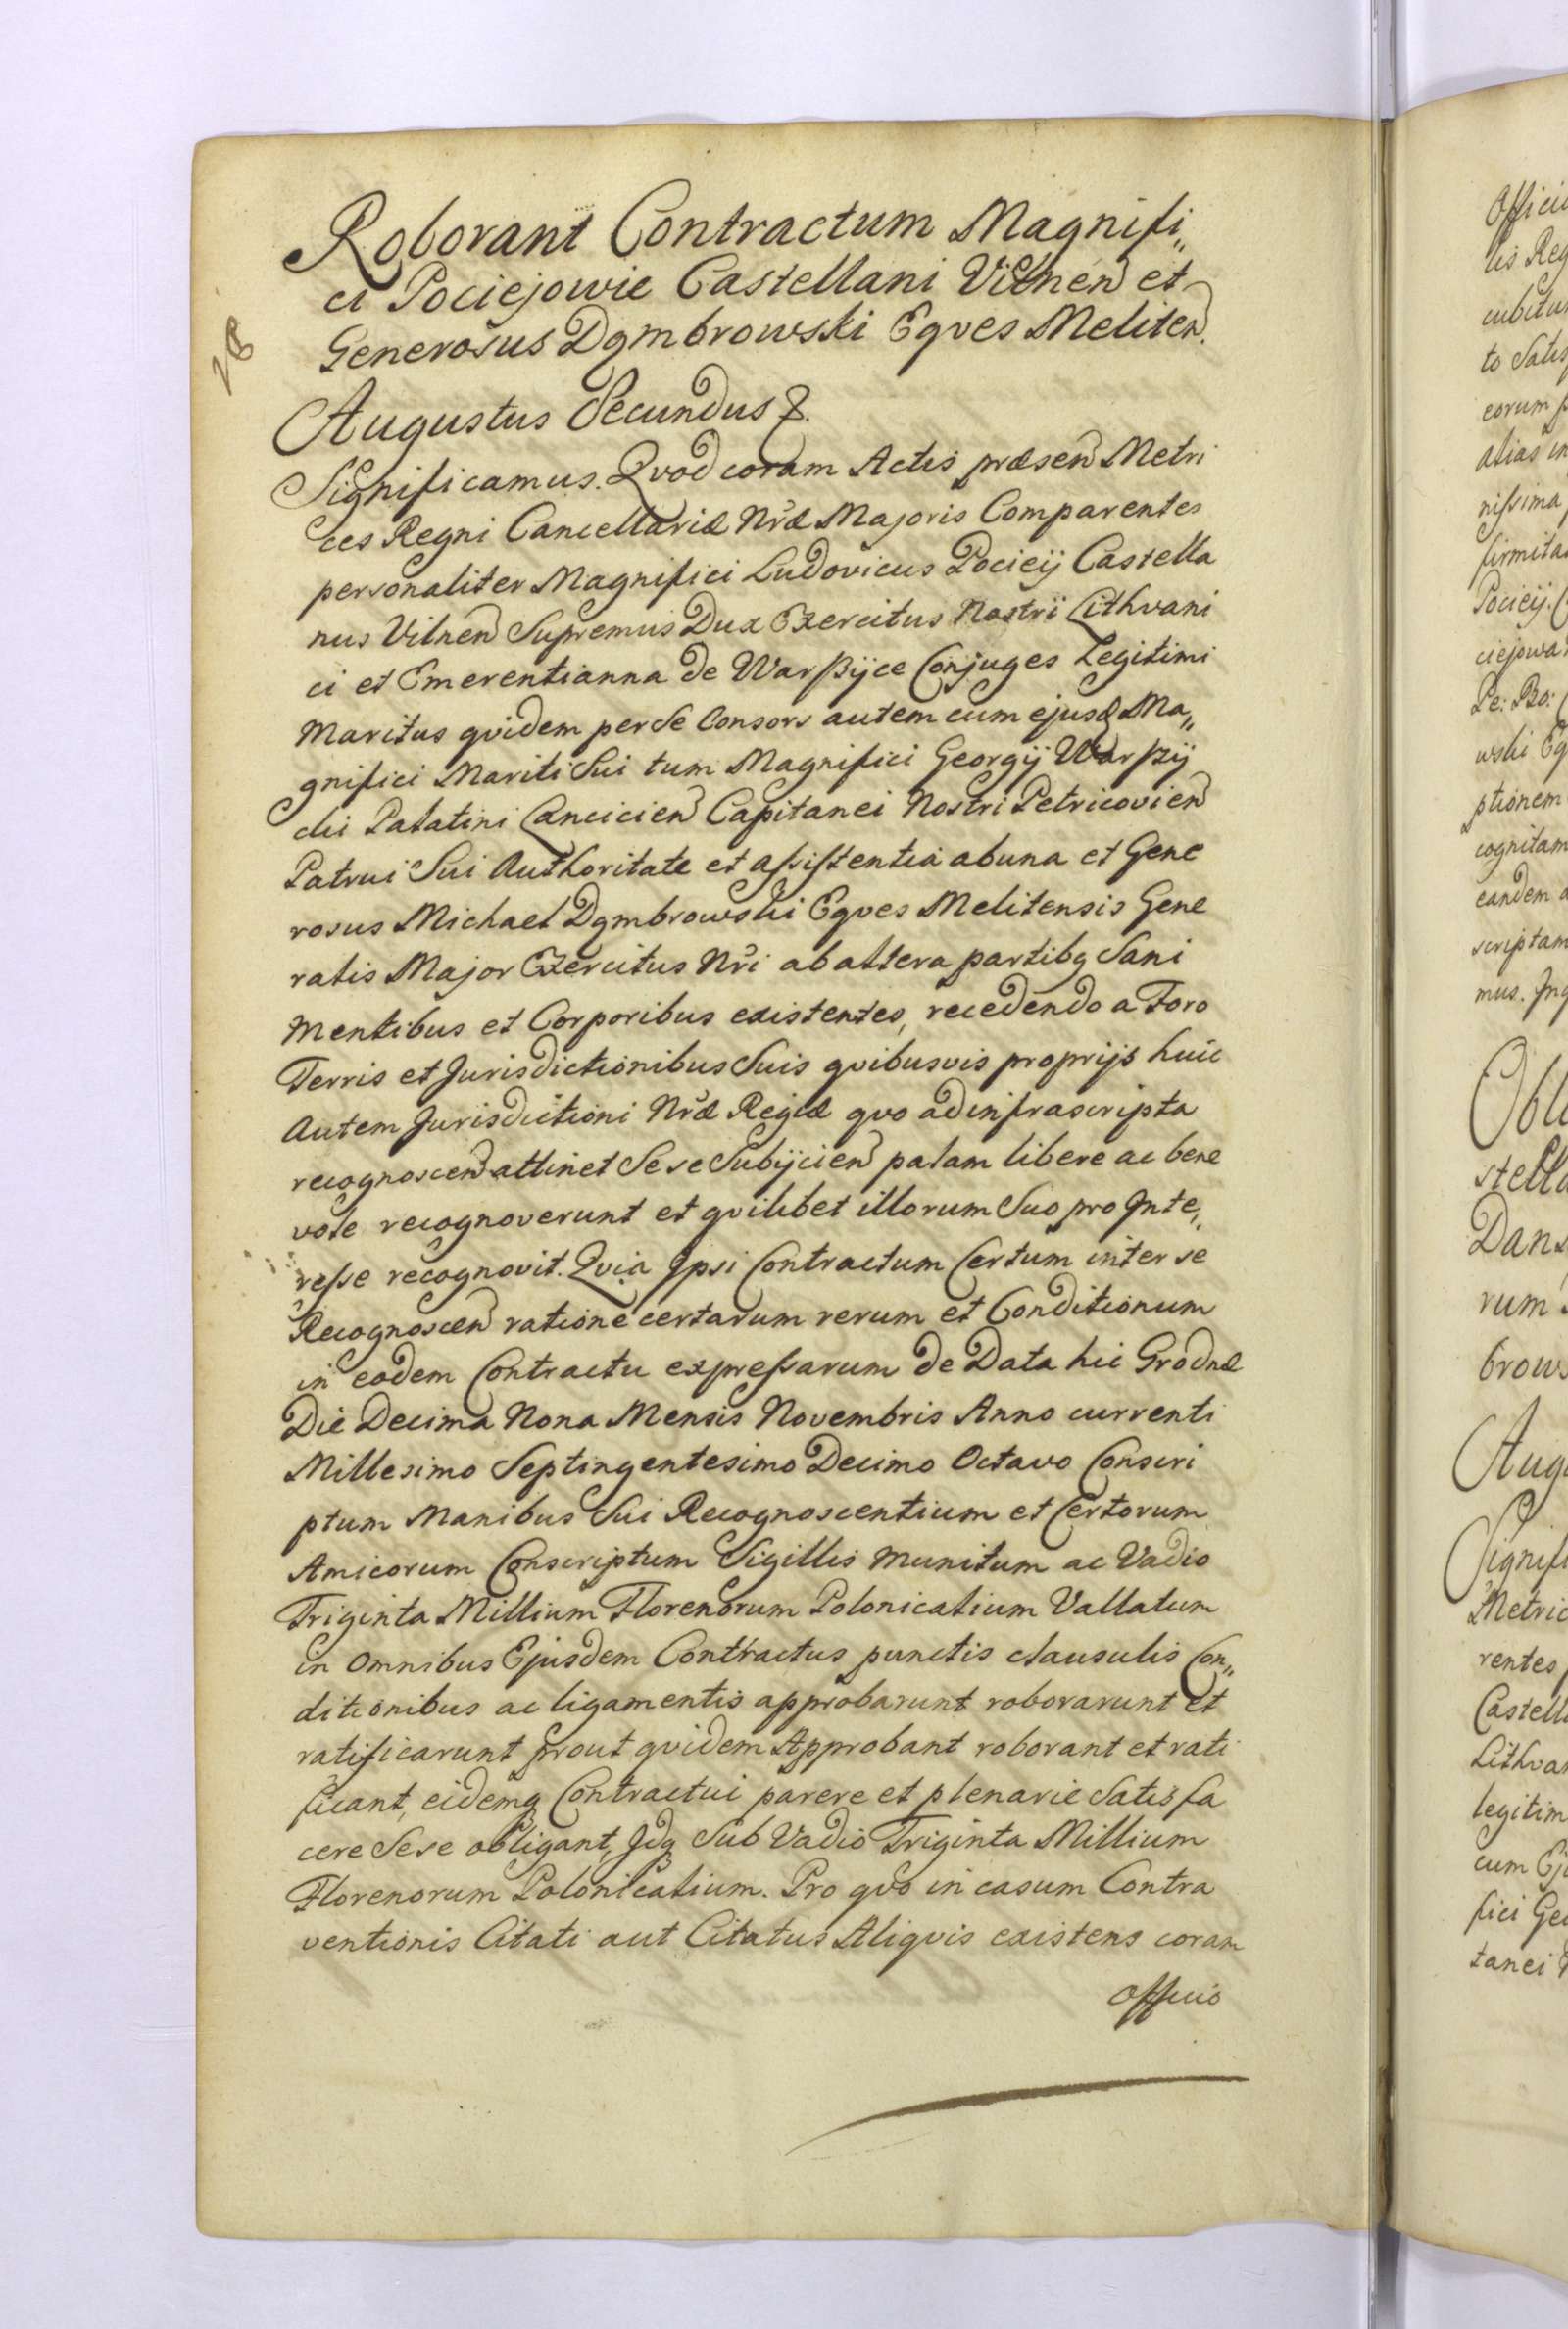 Roborant Contractum Magnifi„
ci Pociejowie Castellani Vilnen et
Generosus Dąmbrowski Eqves Meliten.
28
Augustus Secundus &.
Significamus. Qvod coram Actis præsen Metri
ces Regni Cancellariæ Nræ Majoris Comparentes
personaliter Magnifici Ludovicus Pocieÿ Castella
nus Vilnen Supremus Dux Exercitus Nostri Lithvani
ci et Emerentianna de Warßÿce Conjuges Legitimi
Maritus qvidem per se Consors autem cum ejusd Ma„
gnifici Mariti Sui tum Magnifici Georgÿ Warßÿ
cki Palatini Lancicien Capitanei Nostri Petricovien
Patrui Sui Authoritate et assistentia ab una et Gene
rosus Michael Dąmbrowski Eqves Melitensis Gene
ralis Major Exercitus Nri ab altera partibq Sani
Mentibus et Corporibus existentes, recedendo a Foro
Terris et Jurisdictionibus Suis qvibusvis proprijs huic
Autem Jurisdictioni Nræ Regiæ qvo ad infrascripta
recognoscen attinet Se se Subÿcien palam libere ac bene
vole recognoverunt et qvilibet illorum Suo pro Inte„
resse recognovit. Qvia Ipsi Contractum Certum inter se
Recognoscen ratione certarum rerum et Conditionum
in eodem Contractu expressarum de Data hic Grodnæ
Die Decima Nona Mensis Novembris Anno currenti
Millesimo Septingentesimo Decimo Octavo Conscri
ptum Manibus Sui Recognoscentium et Certorum
Amicorum Conscriptum Sigillis munitum ac Vadio
Triginta Millium Florenorum Polonicalium Vallatum
in Omnibus Ejusdem Contractus punctis clausulis Con„
ditionibus ac ligamentis approbarunt roborarunt et
ratificarunt prout qvidem Approbant roborant et rati
ficant, eidemq Contractui parere et plenarie Satisfa
cere Sese obligant, Idq Sub Vadio Triginta Millium
Florenorum Polonicalium. Pro qvo in casum Contra
ventionis Citati aut Citatus Aliqvis existens coram
officio
Officio
lis Reg
cubitur
to Satis
eorum p
alias in
nissima
firmita
Pocieÿ. C
ciejowa
Pe: Bo:
wski Eq
ptionem
cognitam
eandem a
scriptam
mus. Inq
Obl
stella
Dans
rum
brows
Aug
Signifi
Metric
rentes
Castell
Lithvan
legitim
cum Ej
fici Ge
tanei